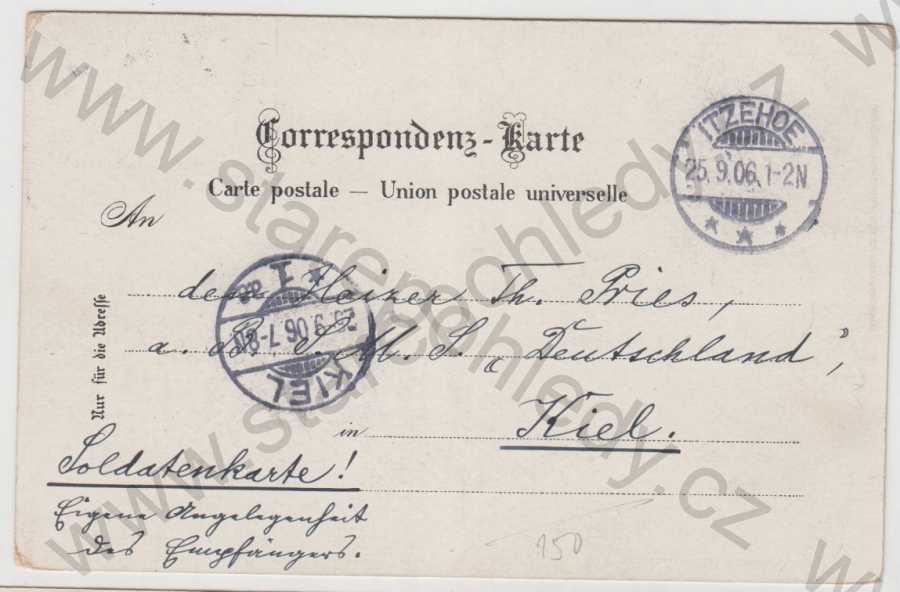 Correspondenz-Karte
Carte postale — Union postale universelle
ITZEHOE
25.9.06. 1-2N
An
dem Heizer Th. Pries,
a. B. S. M. S. „Deutschland“,
in Kiel.
Nur für die Adresse
KIEL
25.9.06.7-8N
1
Soldatenkarte!
Eigene Angelegenheit
des Empfängers.
150
www.starepohledy.cz
www.starepohledy.cz